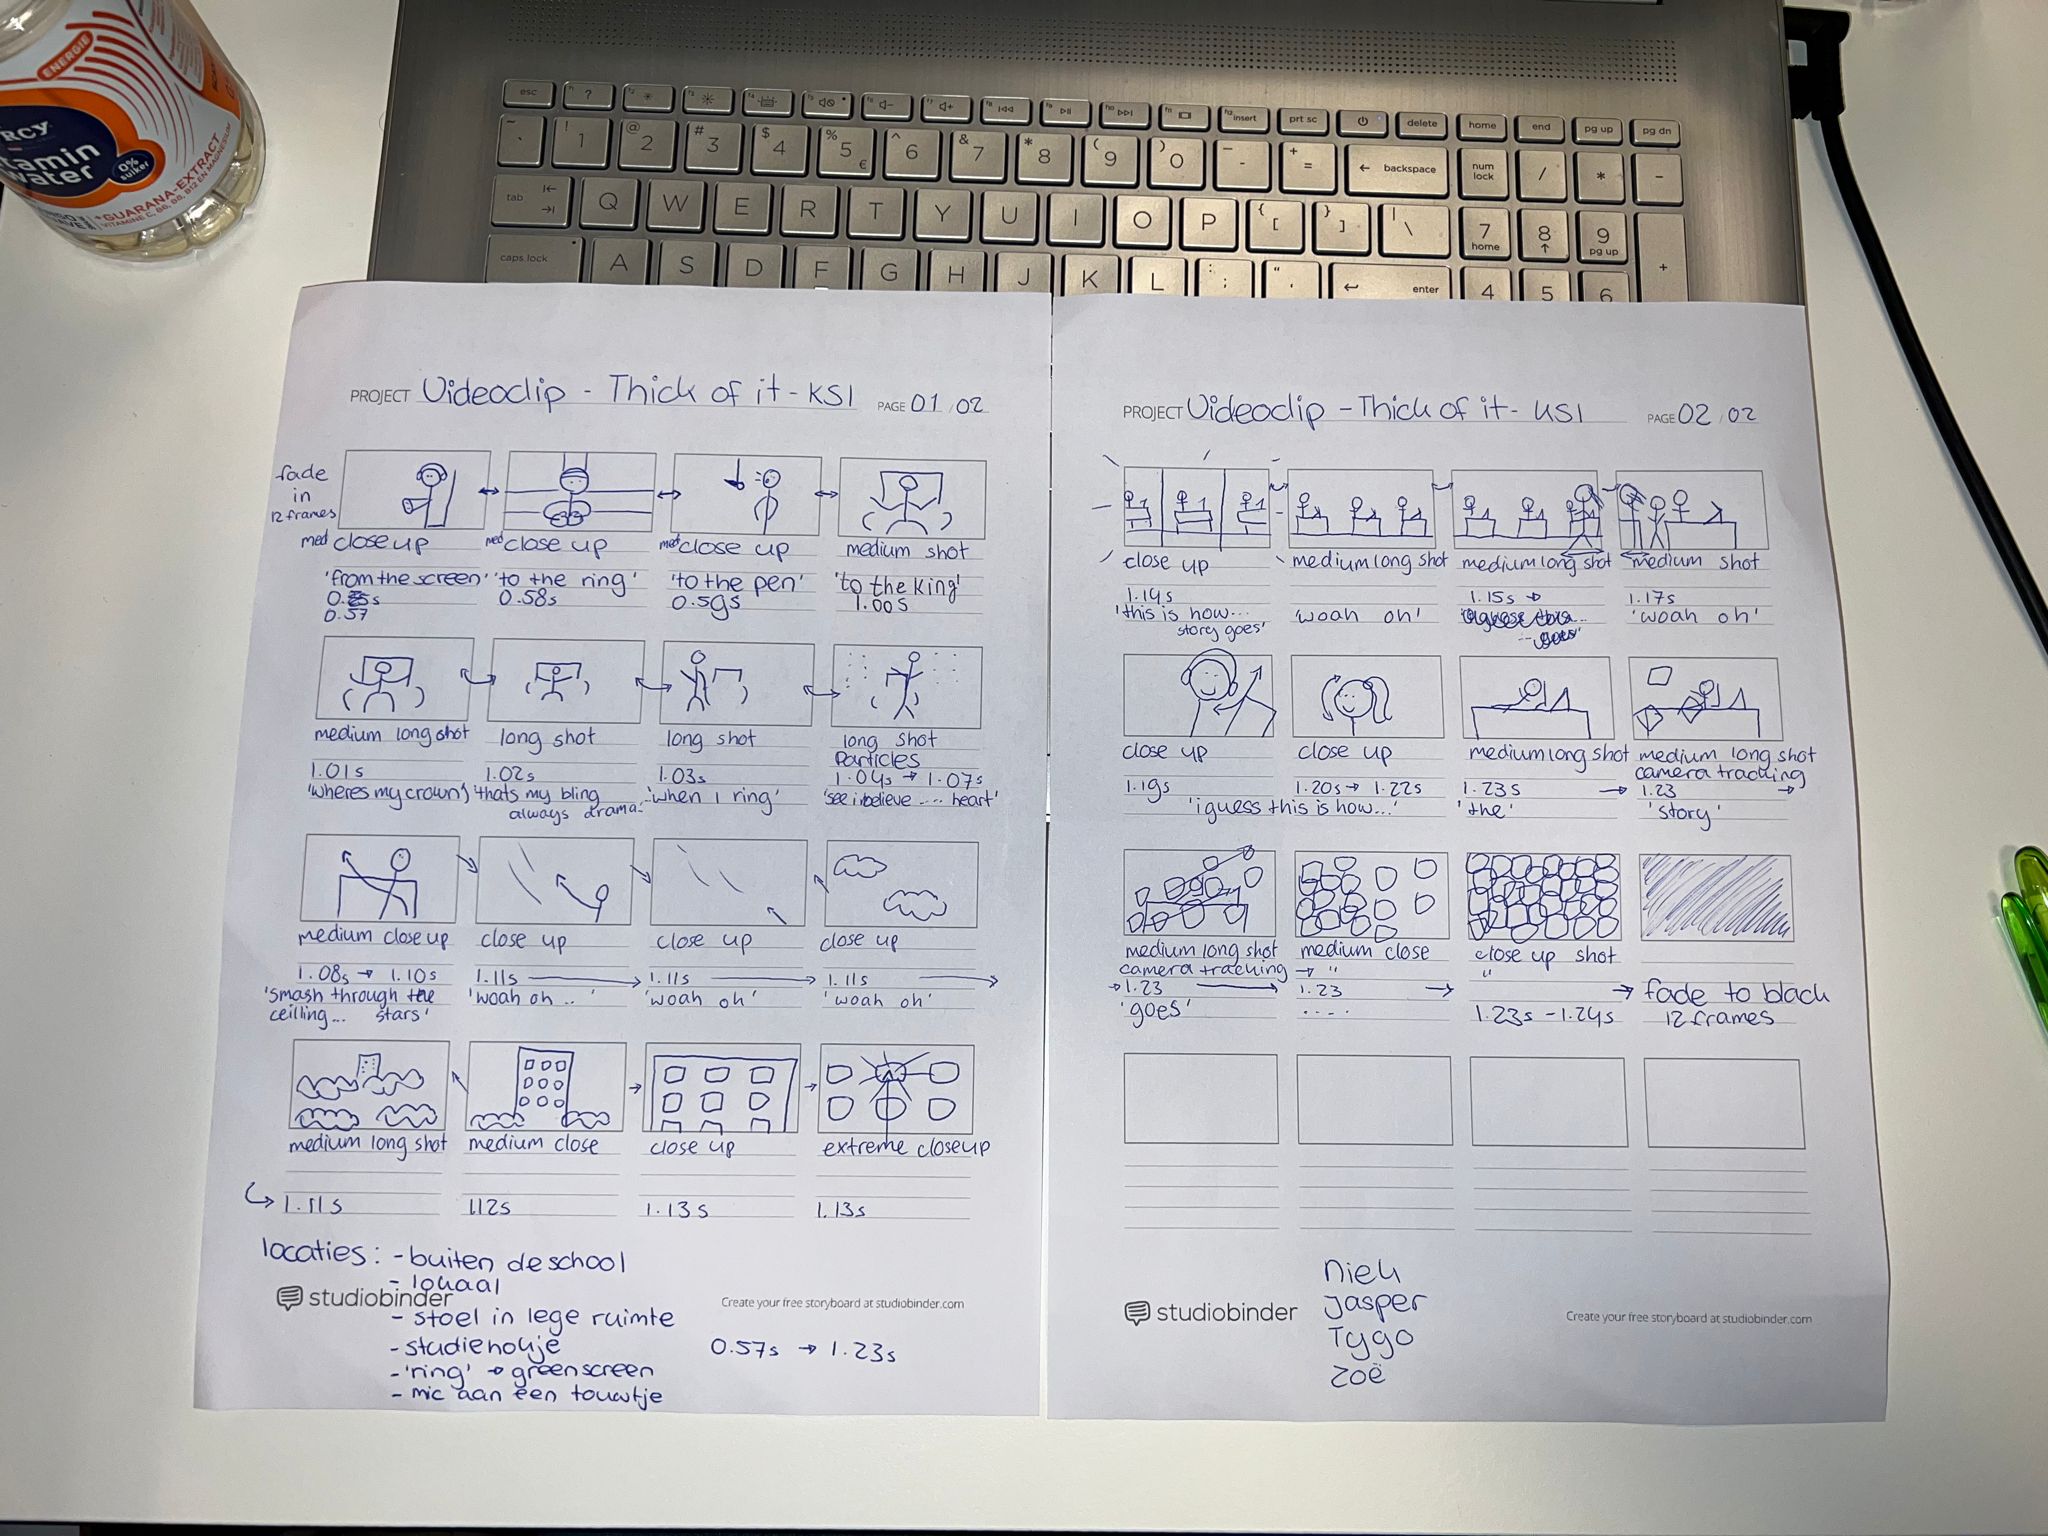 ENERGIE
RCY
tamin
water
0%
suiker
+GUARANA-EXTRACT
VITAMINE C, B6, B8, B12 EN MAGNESIUM
esc
?
insert
prt sc
delete
home
end
pg up
pg dn
~ ! @ # $ % ^ & * ( ) _ +
1 2 3 4 5 € 6 7 8 9 0 - = ← backspace
num lock / * -
tab Q W E R T Y U I O P { [ } ] | \ 7 home 8 ↑ 9 pg up +
caps lock A S D F G H J K L : ; " ' ← enter 4 5 6
PROJECT Videoclip - Thick of it - KSI PAGE 01 / 02
fade
in
12 frames
med close up med close up med close up medium shot
'from the screen' 'to the ring' 'to the pen' 'to the King'
0.58s 0.59s 1.00s
0.57
medium long shot long shot long shot long shot
Particles
1.01s 1.02s 1.03s 1.04s → 1.07s
'wheres my crown' 'thats my bling 'when I ring' 'see i believe .... heart'
always drama..
medium close up close up close up close up
1.08s → 1.10s 1.11s → 1.11s → 1.11s →
'smash through the 'woah oh ..' 'woah oh' 'woah oh'
ceilling... stars'
medium long shot medium close close up extreme closeup
1.11s 1.12s 1.13s 1.13s
locaties: - buiten de school
- lokaal
studiobinder
Create your free storyboard at studiobinder.com
- stoel in lege ruimte
- studiehokje
0.57s → 1.23s
- 'ring' → greenscreen
- mic aan een touwtje
PROJECT Videoclip - Thick of it - KSI PAGE 02 / 02
close up medium long shot medium long shot medium shot
1.14s 1.15s → 1.17s
'this is how... 'woah oh' 'woah oh'
story goes'
close up close up medium long shot medium long shot
camera tracking
1.19s 1.20s → 1.22s 1.23s → 1.23 →
'i guess this is how...' 'the' 'story'
medium long shot medium close close up shot
camera tracking → " "
→ 1.23 → 1.23 → → fade to black
'goes' .... 1.23s - 1.24s 12 frames
Niek
Jasper
Tygo
Zoë
studiobinder
Create your free storyboard at studiobinder.com